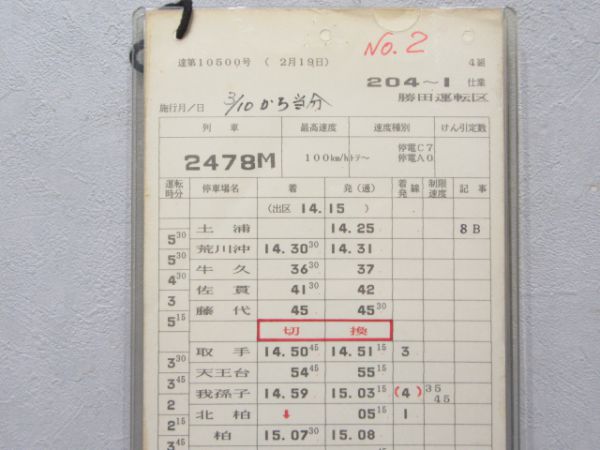 No. 2
達第10500号 ( 2月19日) 4組
204～1 仕業
施行月/日 3/10から当分 勝田運転区
列車 最高速度 速度種別 けん引定数
2478M 100km/h トテ～ 停電C7
停電A0
運転時分 停車場名 着 発(通) 着発線 制限速度 記事
(出区 14.15 )
土浦 14.25 8B
5 30
荒川沖 14.30 30 14.31
5 30
牛久 36 30 37
4 30
佐貫 41 30 42
3
藤代 45 45 30
5 15
切換
取手 14.50 45 14.51 15 3
3 30
天王台 54 45 55 15
3 45
我孫子 14.59 15.03 15 (4) 35
45
2
北柏 ↓ 05 15 1
2 15
柏 15.07 30 15.08
3 45